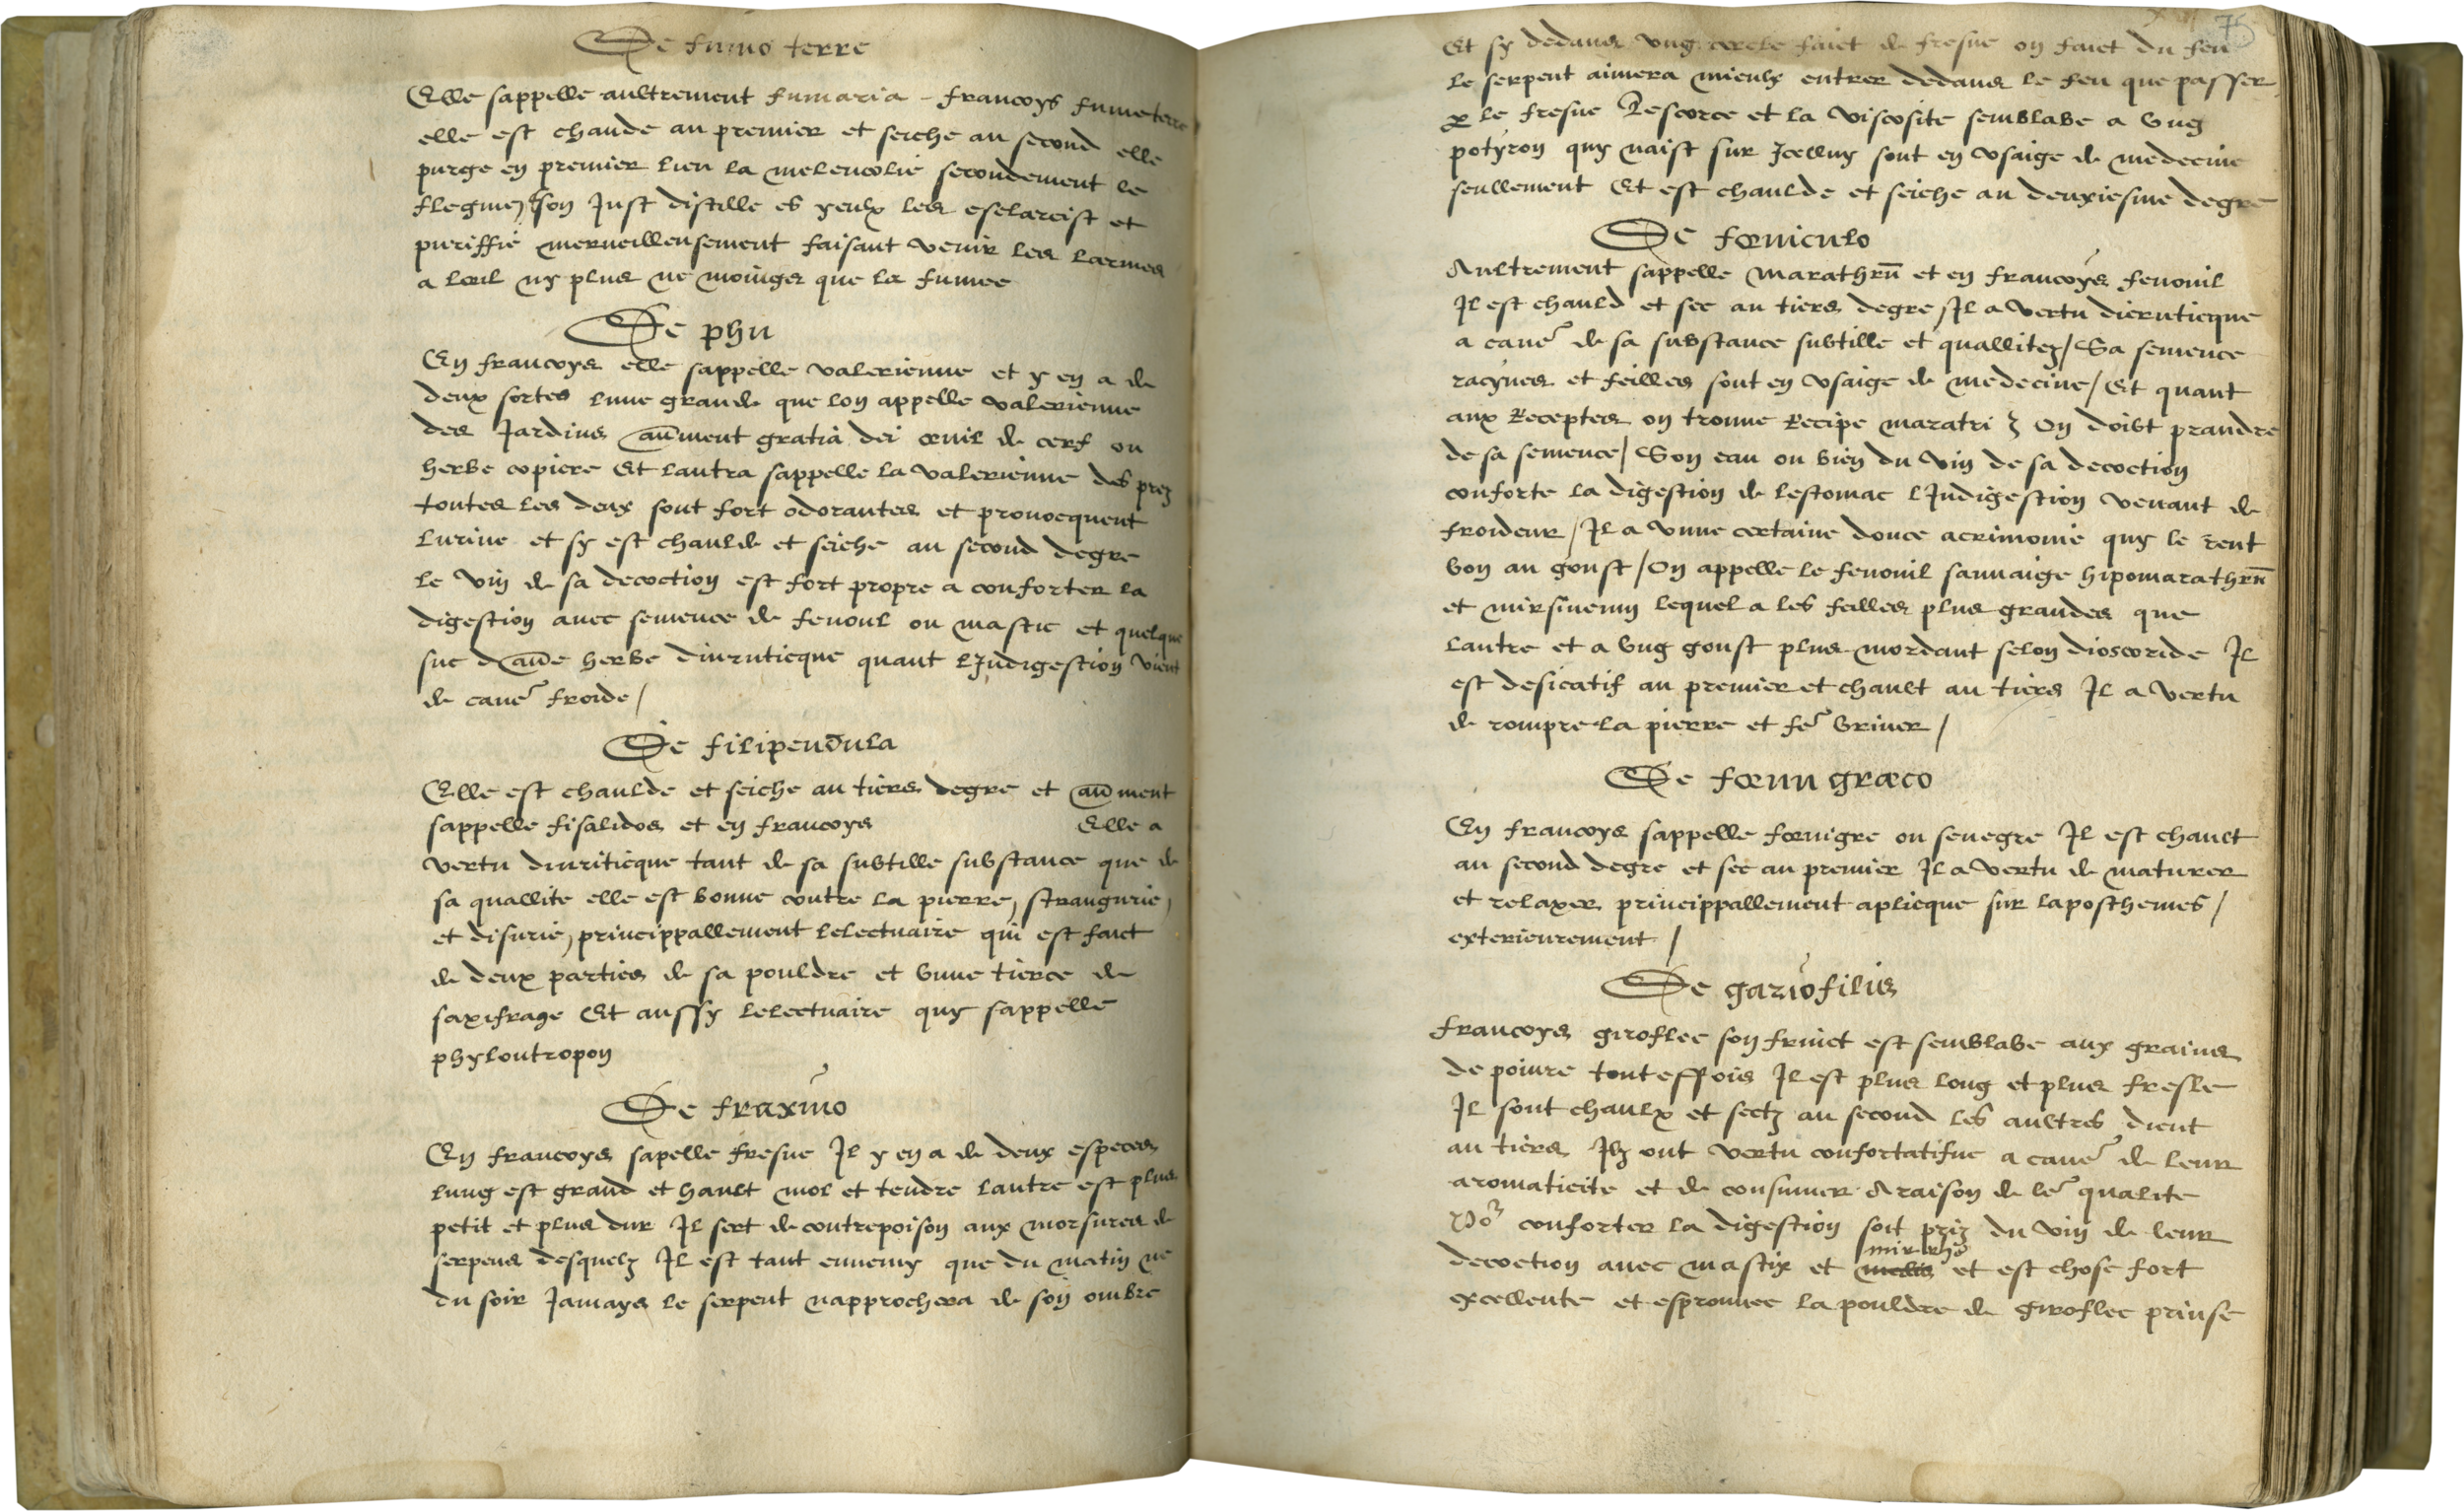 De fumo terre
Elle sappelle aultrement fumaria - francoys fumeterre
elle est chaude au premier et seiche au second elle
purge en premier lieu la melencolie secondement le
flegme, son Just distille es yeulx les esclarcist et
puriffie merveilleusement faisant venir les larmes
a lœil ny plus ne moings que la fumee
De phu
En francoys elle sappelle valerienne et y en a de
deux sortes lune grande que lon appelle valerienne
des Jardins aūment gratia dei œuil de cerf ou
herbe copiere Et lautra sappelle la valerienne des prez
toutes les deux sont fort odorantes et provocquent
lurine et sy est chaulde et seiche au second degre
le vin de sa decoction est fort propre a conforter la
digestion avec semence de fenoul ou mastic et quelque
suc daūe herbe diurticque quant lJndigestion vient
de cause froide /
De filipendula
Elle est chaulde et seiche au tiers degre et aūment
sappelle fisalidos et en francoys Elle a
vertu diuriticque tant de sa subtille substance que de
sa quallite elle est bonne contre la pierre, strangurie,
et disurie, princippallement lelectuaire qui est faict
de deux parties de sa pouldre et vune tierce de
saxifrage Et aussy lelectuaire quy sappelle
phylontropon
De fraxino
En francoys sapelle fresne Il y en a de deux especes
lung est grand et hault mol et tendre lautre est plus
petit et plus dur Il sert de contrepoison aux morsures de
serpens desquelz Il est tant ennemy que du matin ne
du soir Jamays le serpent napprochera de son ombre
75
Et sy dedans ung cercle faict de fresne on faict du feu
le serpent aimera mieulx entrer dedans le feu que passer
p le fresne Lescorce et la viscosite semblabe a vug
potyron quy naist sur Jcelluy sont en usaige de medecine
seullement Et est chaulde et seiche au deuxiesme degre
De fœniculo
Aultrement sappelle marathrū et en francoys fenouil
Il est chauld et sec au tiers degre, Il a vertu dieruticque
a cause de sa substance subtille et quallitez / Sa semence
racynes et feilles sont en usaige de medecine / Et quant
aux Receptes on trouve Recipe maratri ʒ On doibt prandre
de sa semence / Son eau ou bien du vin de sa decoction
conforte la digestion de lestomac lJndigestion venant de
froideur / Il a vune certaine douce acrimonie quy le rent
bon au goust / On appelle le fenouil sauvaige hipomarathrū
et mirsinemy lequel a les feilles plus grandes que
lautre et a vug goust plus mordant selon dioscoride Il
est desicatif au premier et chault au tiers Il a vertu
de rompre la pierre et fe᷑ uriner /
De fœnu græco
En francoys sappelle fœnigre ou senegre Il est chault
au second degre et sec au premier Il a vertu de maturer
et relaxer princippallement aplicque sur laposthemes /
exterieurement /
De gariofilis
francoys giroflee son fruict est semblabe aux grains
de poivre touteffois Il est plus long et plus fresle
Il sont chaulx et sectz au second les aultres dient
au tiers Ilz ont vertu confortatifve a cause de leur
aromaticite et de consumer A raison de le᷑ qualite
Po᷑ conforter la digestion soit priz du vin de leur
mirrhe
decoction avec mastix et et est chose fort
excellente et esprouvee la pouldre de giroflee prinse